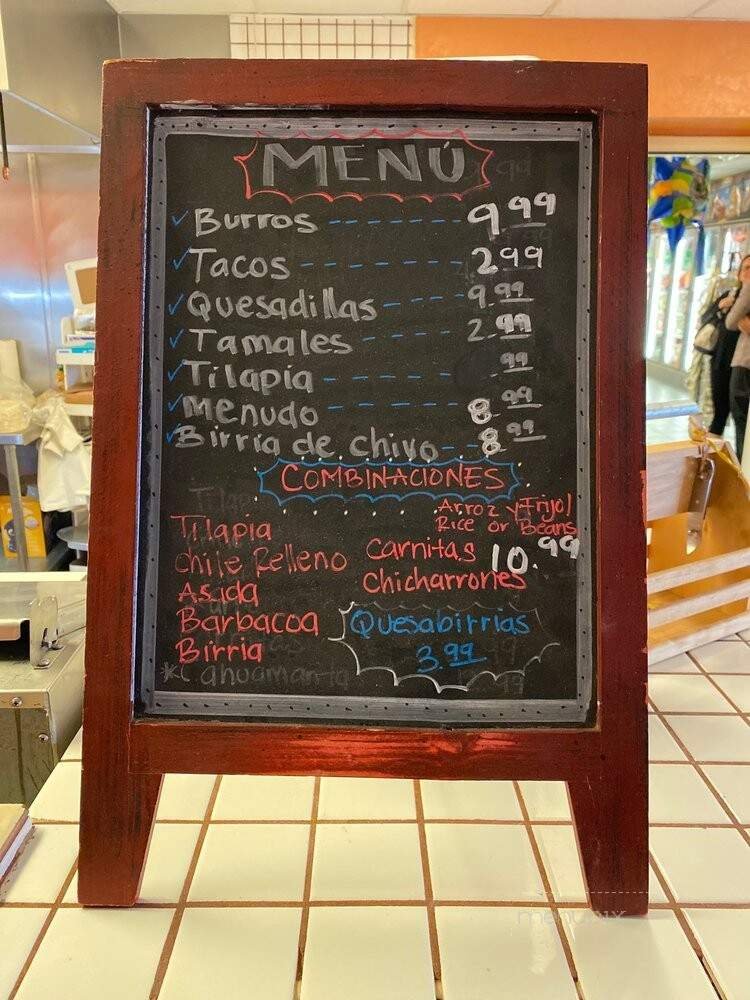 MENÚ
✓ Burros ------- 9.99
✓ Tacos ------- 2.99
✓ Quesadillas ---- 9.99
✓ Tamales ----- 2.99
✓ Tilapia ------- .99
✓ Menudo ------- 8.99
✓ Birria de chivo -- 8.99
COMBINACIONES
Arroz y Frijol
Rice or Beans
Tilapia
Chile Relleno
Asada
Barbacoa
Birria
*Cahuamanta
Carnitas 10.99
Chicharrones
Quesabirrias
3.99
menupix